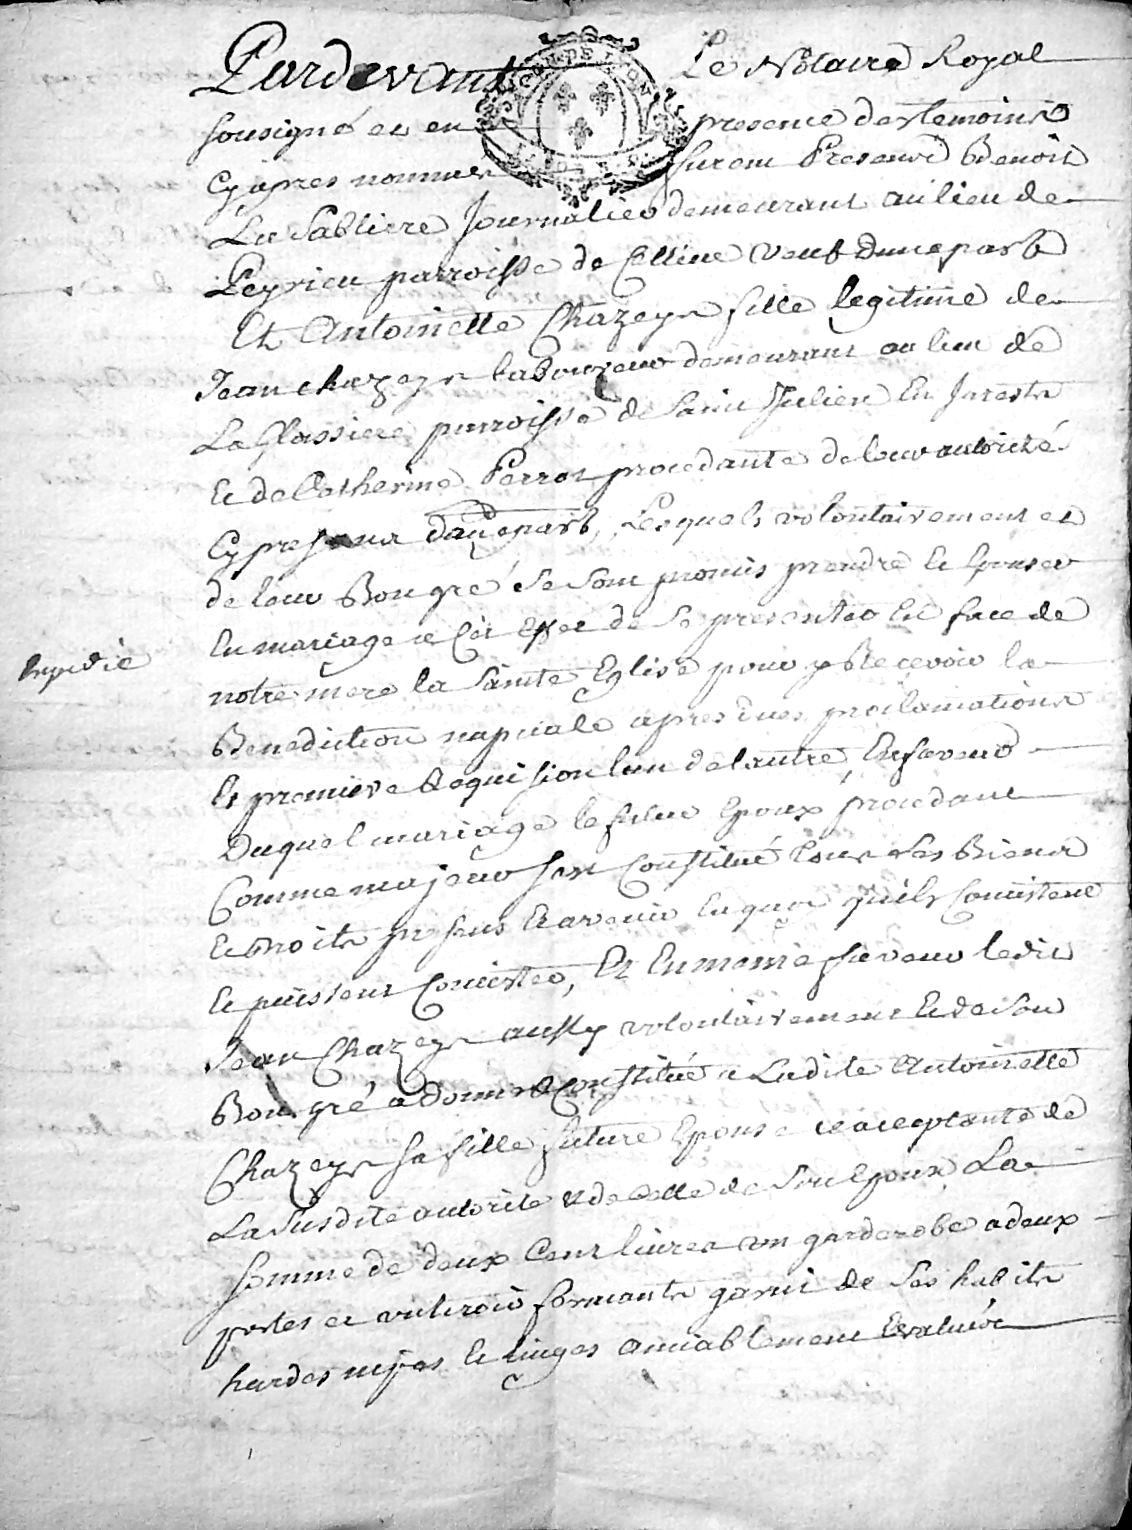 Pardevant Le Notaire Royal
sousigné et en presence des temoins
Cy apres nommes furent Presents Benoit
La Sabliere Journalier demeurant au lieu de
Peyrieu parroisse de Cellieu veuf d'une part
Et Antoinette Chazeys fille legitime de
Jean Chazeys laboureur demeurant au lieu de
La Glassiere parroisse de Saint Julien En Jarests
Et de Catherine Perrot procedante de leur autorité
Cy presents d'au part, Lesquels volontairement et
de leur Bon gré se sont promis prendre Et Epouser
En mariage a cet Effet de se presenter En face de
notre mere la Sainte Eglise pour y Recevoir la
Benediction nuptiale apres dues proclamations
Et premiere Requision l'un de l'autre, En faveur
Duquel mariage le futur Epoux procedant
Comme majeur s'est Constitué tous ses Biens
Et Droits presens Et avenir En quoi qu'ils Consistent
Et puissent Consister, Et En meme faveur ledit
Jean Chazeys aussy volontairement Et de son
Bon gré a donné & Constitué a Ladite Antoinette
Chazeys sa fille future Epouse ce acceptante de
La susdite autorite & de celle de son Epoux La
somme de deux Cent livres un garderobe a deux
portes et un tiroir fermants garni de ses habits
hardes nipes Et linges amiablement Evalués
Expedié